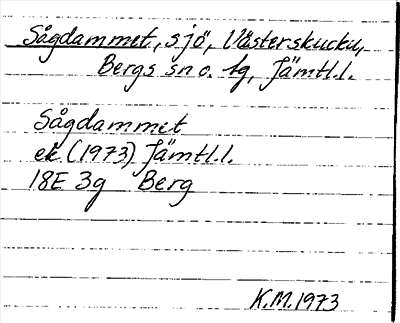 Sågdammet, sjö, Västerskucku,
Bergs sn o. tg, Jämtl.l.
Sågdammet
ek (1973) Jämtl.l.
18E 3g Berg
K.M.1973